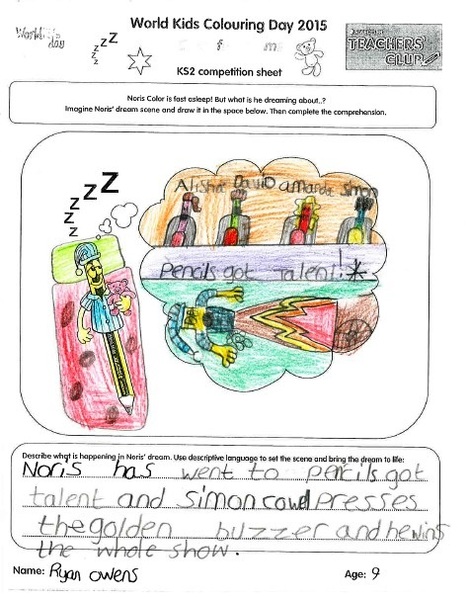 World Kids Colouring Day 2015
World kids
day
KS2 competition sheet
TEACHERS'
CLUB
Noris Color is fast asleep! But what is he dreaming about..?
Imagine Noris' dream scene and draw it in the space below. Then complete the comprehension.
z z z Z
z z z Z Z
Alisha David amanda simon
Pencils got Talent!
Describe what is happening in Noris' dream. Use descriptive language to set the scene and bring the dream to life:
Noris has went to pencils got
talent and simon cowel presses
the golden buzzer and he wins
the whole show.
Name: Ryan owens Age: 9